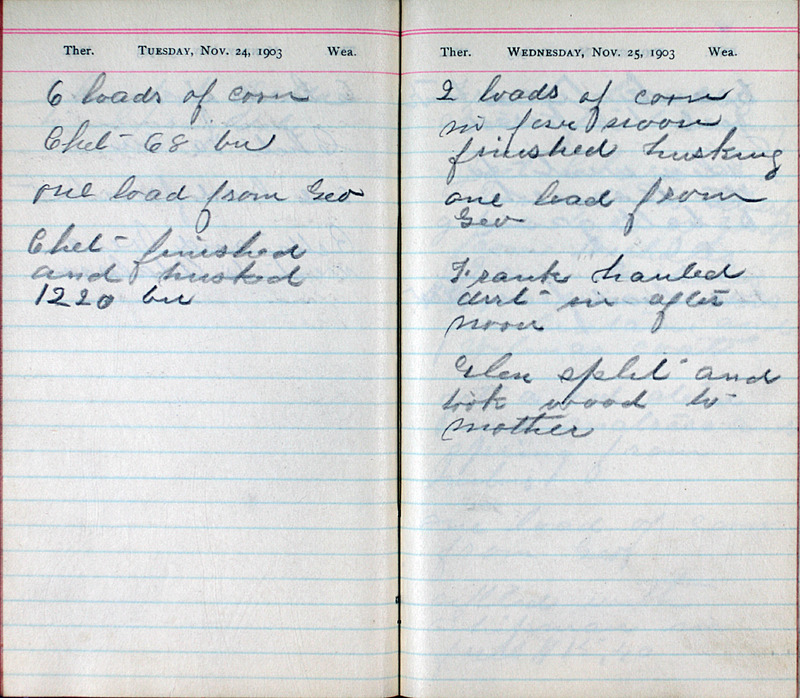 Ther. TUESDAY, NOV. 24, 1903 Wea.
6 loads of corn
Chet 68 bu
one load from Geo
Chet finished
and husked
1220 bu
Ther. WEDNESDAY, NOV. 25, 1903 Wea.
2 loads of corn
in fore noon
finished husking
one load from
Geo
Frank hauled
dirt in after
noon
Glen split and
took wood to
mother